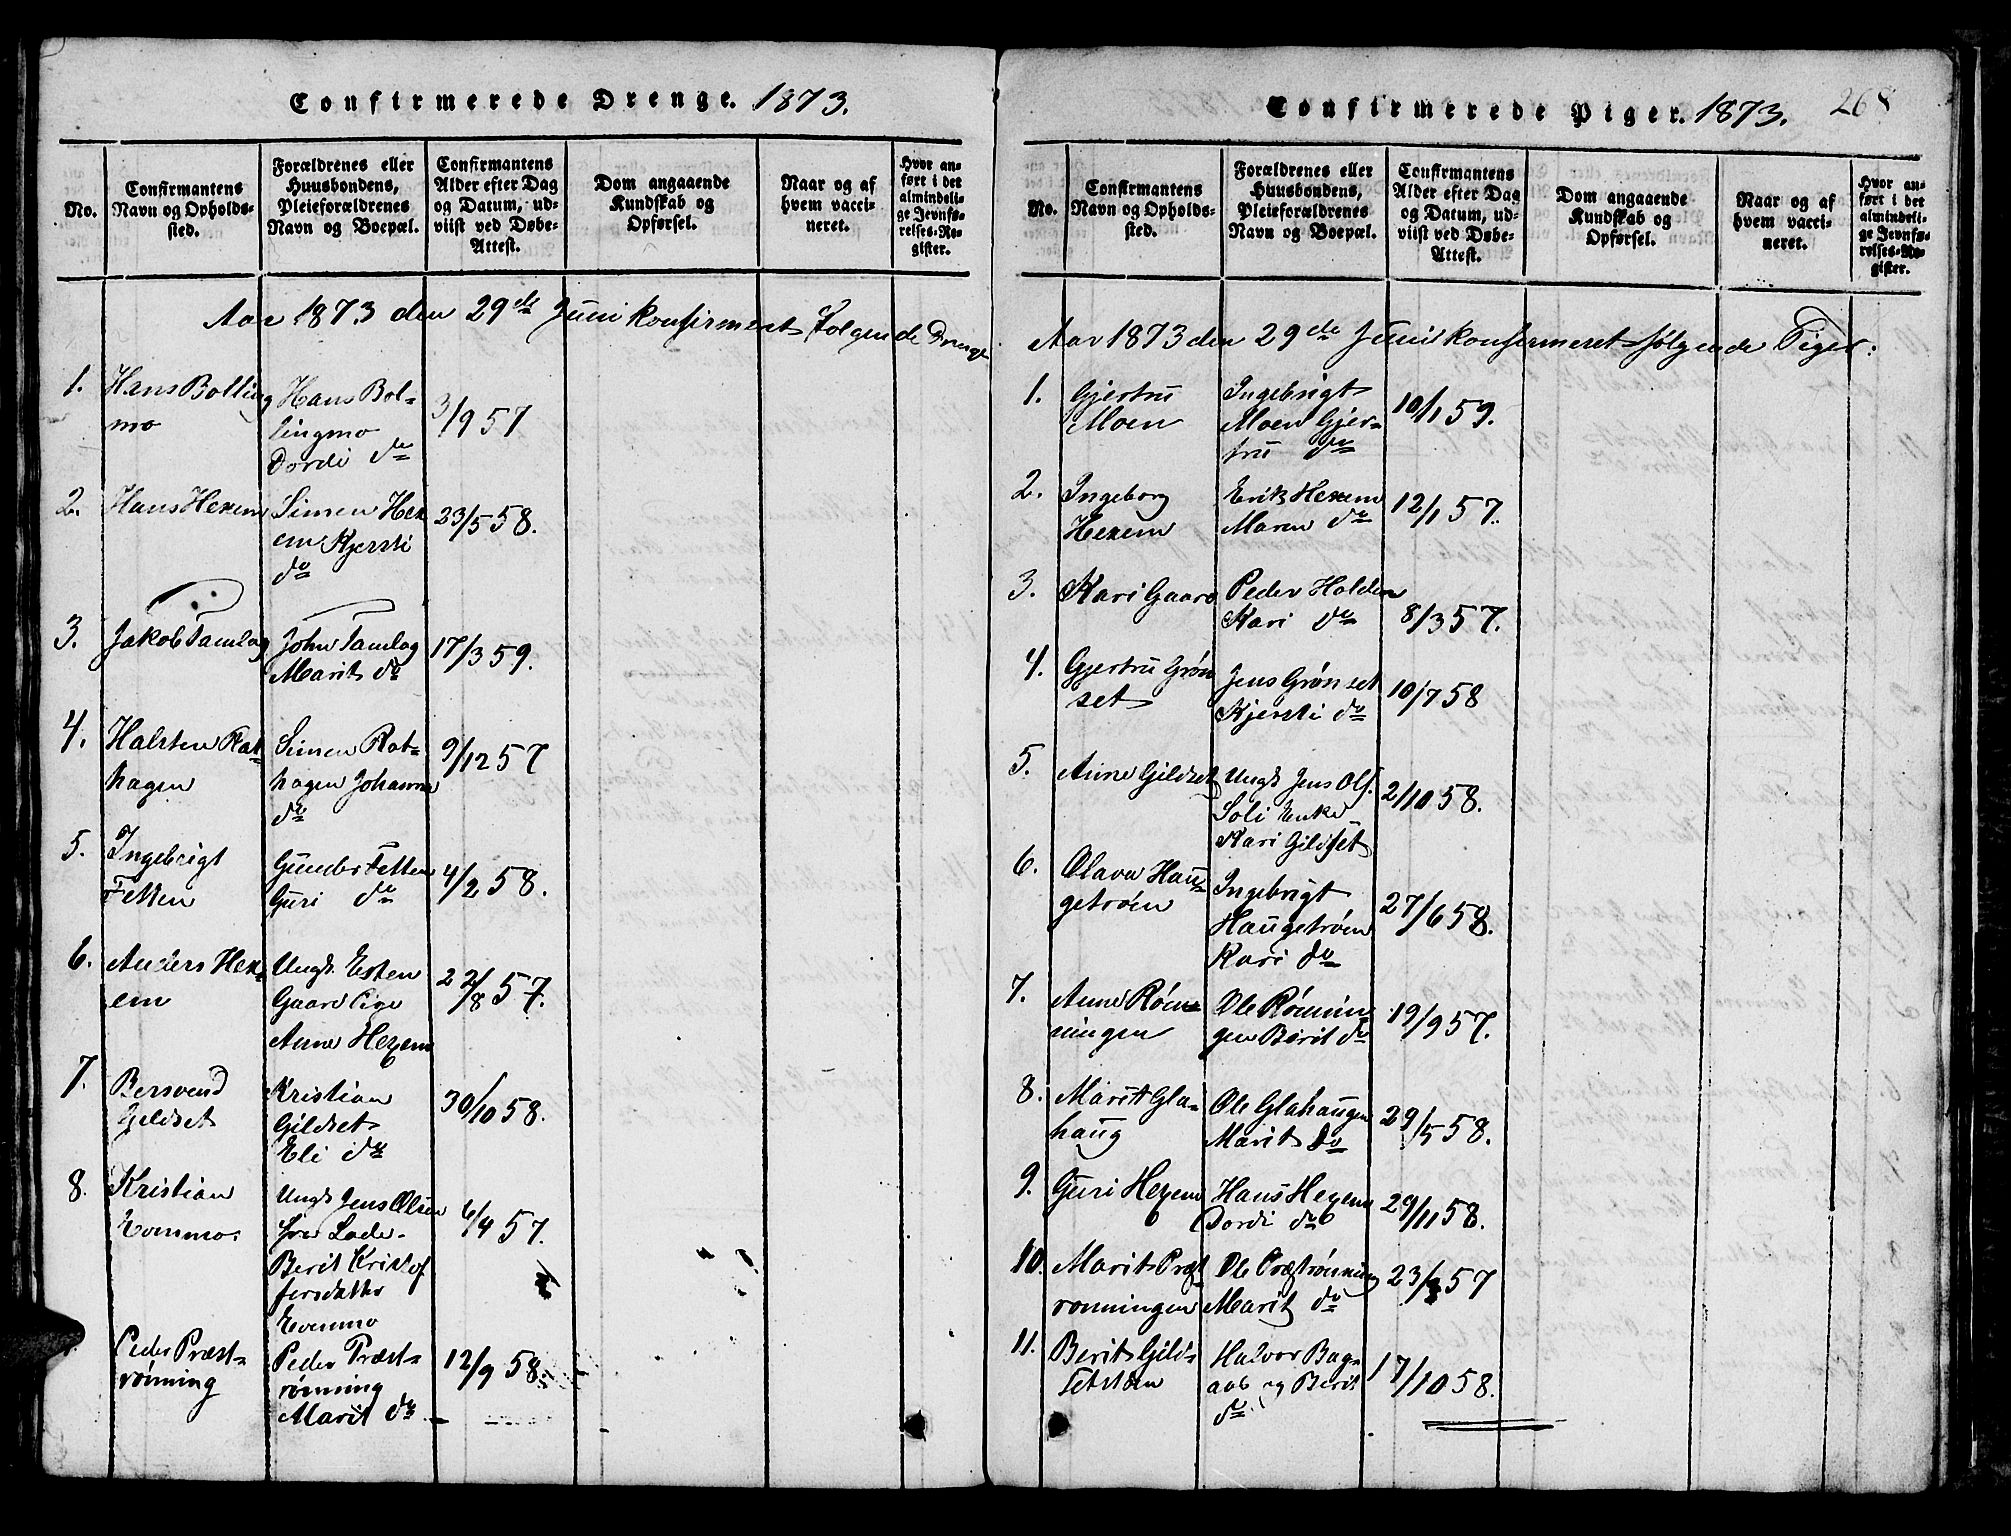 Confirmerede Drenge. 1873.
No.
Confirmantens
Navn og Opholds-
sted.
Forældrenes eller
Huusbondens,
Pleieforældrenes
Navn og Boepæl.
Confirmantens
Alder efter Dag
og Datum, ud-
viist ved Døbe-
Attest.
Dom angaaende
Kundskab og
Opførsel.
Naar og af
hvem vacci-
neret.
Hvor an-
ført i det
almindeli-
ge Jevnfø-
relses-Re-
gister.
Aar 1873 den 29de Juni konfirmert følgende Drenge
1.
Hans Bolling
mo
Hans Bol-
lingmo
Dordi do
3/9 57
2.
Hans Hexem
Simen Hex
em Kjersti
do
23/5 58.
3.
Jakob Tamlag
John Tamlag
Marit do
17/3 59.
4.
Halsten Rat-
hagen
Simen Rot-
hagen Johanna
do
9/12 57
5.
Ingebrigt
Fetten
Gunder Fetten
Guri do
4/2 58.
6.
Anders Hex-
em
Ungk. Esten
Gaare Pige
Anne Hexem
22/8 57.
7.
Bersvend
Gildset
Kristian
Gildset
Eli do
30/10 58.
8.
Kristian
Evenmo.
Ungk. Jens Olsen
fra Lade.
Berit Kristof
fersdatter
Evenmo
6/4 57.
Peder Præst-
rønning
Peder Præst-
rønning
Marit do
12/9 58
Confirmerede Piger. 1873.
268
No.
Confirmantens
Navn og Opholds-
sted.
Forældrenes eller
Huusbondens,
Pleieforældrenes
Navn og Boepæl.
Confirmantens
Alder efter Dag
og Datum, ud-
viist ved Døbe-
Attest.
Dom angaaende
Kundskab og
Opførsel.
Naar og af
hvem vacci-
neret.
Hvor an-
ført i det
almindeli-
ge Jevnfø-
relses-Re-
gister.
Aar 1873 den 29de Juni konfirmeret følgende Piger:
1.
Gjertru
Moen
Ingebrigt
Moen Gjer-
tru do
10/1 59.
2.
Ingeborg
Hexem
Erik Hexem
Maren do
12/1 57.
3.
Kari Gaare
Peder Holden
Kari do
8/3 57.
4.
Gjertru Grøn
set
Jens Grønset
Kjersti do
10/7 58
5.
Anne Gildset
Ungk Jens Ols.
Soli Enke
Kari Gildset
2/10 58.
6.
Olava Hau-
getrøen
Ingebrigt
Haugetrøen
Kari do
27/6 58.
7.
Anne Røn-
ningen
Ole Rønnin-
gen Berit do
19/9 57.
8.
Marit Gla-
haug
Ole Glahaugen
Marit do
29/5 58.
9.
Guri Hexem
Hans Hexem
Dordi do
29/11 58.
10.
Marit Præst
rønningen
Ole Præstrønning
Marit do
23/3 57
11.
Berit Gild-
setstøen
Halvor Bag-
aab og Berit
do
17/10 58.